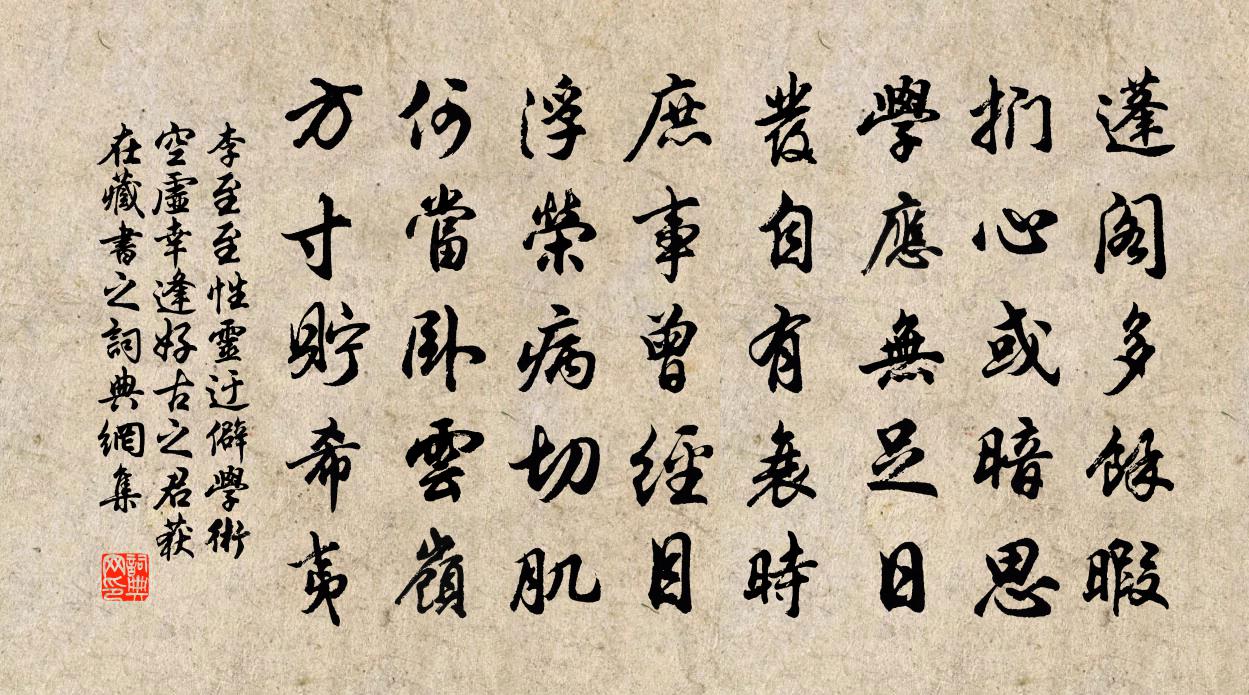 蓬阁多餘暇
捫心或暗思
學應無足日
發自有衰時
庶事曾經目
浮榮病切肌
何當卧雲嶺
方寸貯希夷
李至至性靈迂僻學術
空虛幸逢好古之君获
在藏書之詞典網集
詞典
网印